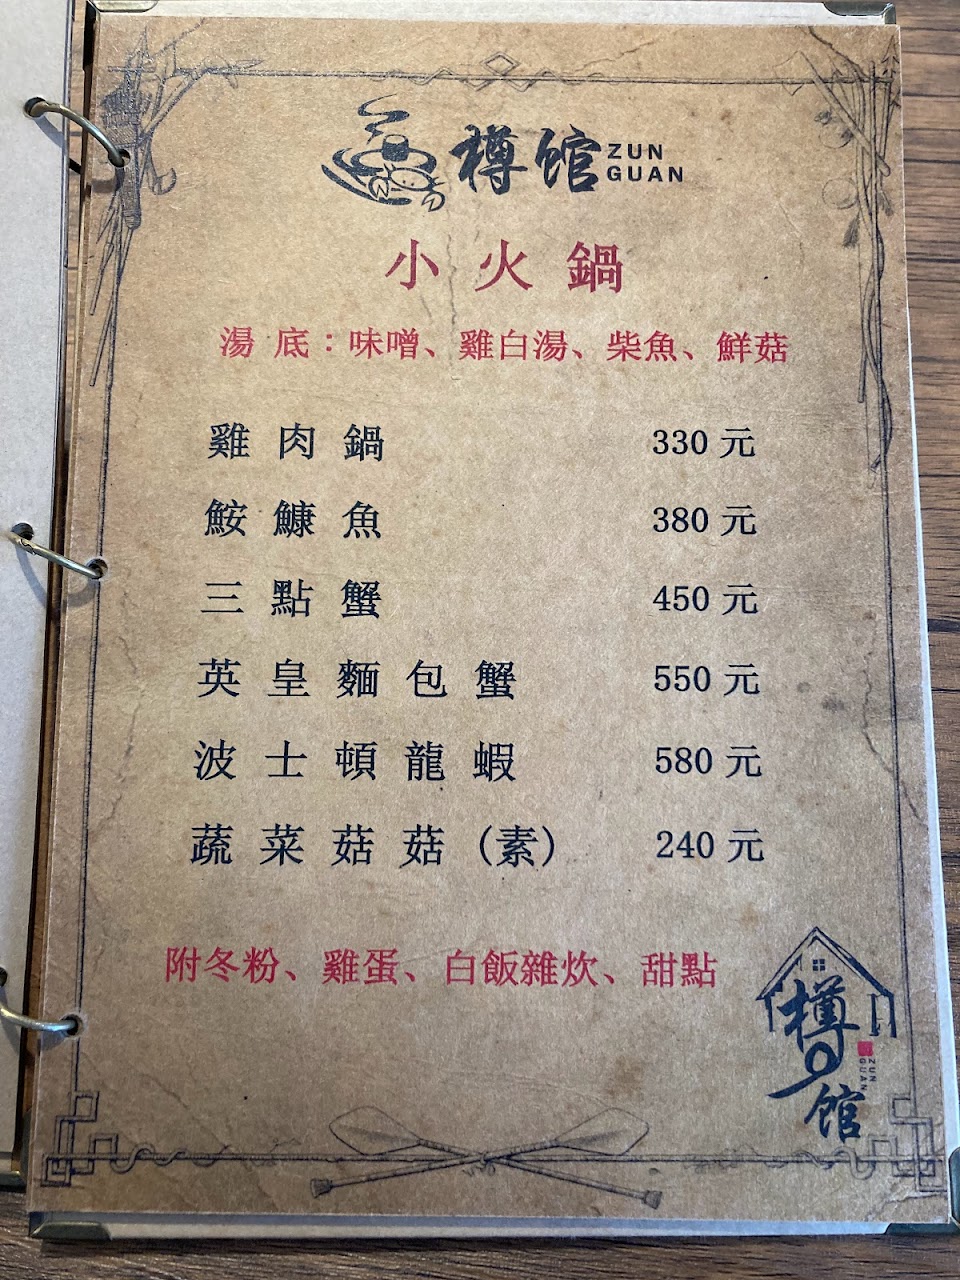 樽館 ZUN GUAN
小火鍋
湯底：味噌、雞白湯、柴魚、鮮菇
雞肉鍋 330元
鮟鱇魚 380元
三點蟹 450元
英皇麵包蟹 550元
波士頓龍蝦 580元
蔬菜菇菇（素） 240元
附冬粉、雞蛋、白飯雜炊、甜點
樽館
ZUN GUAN